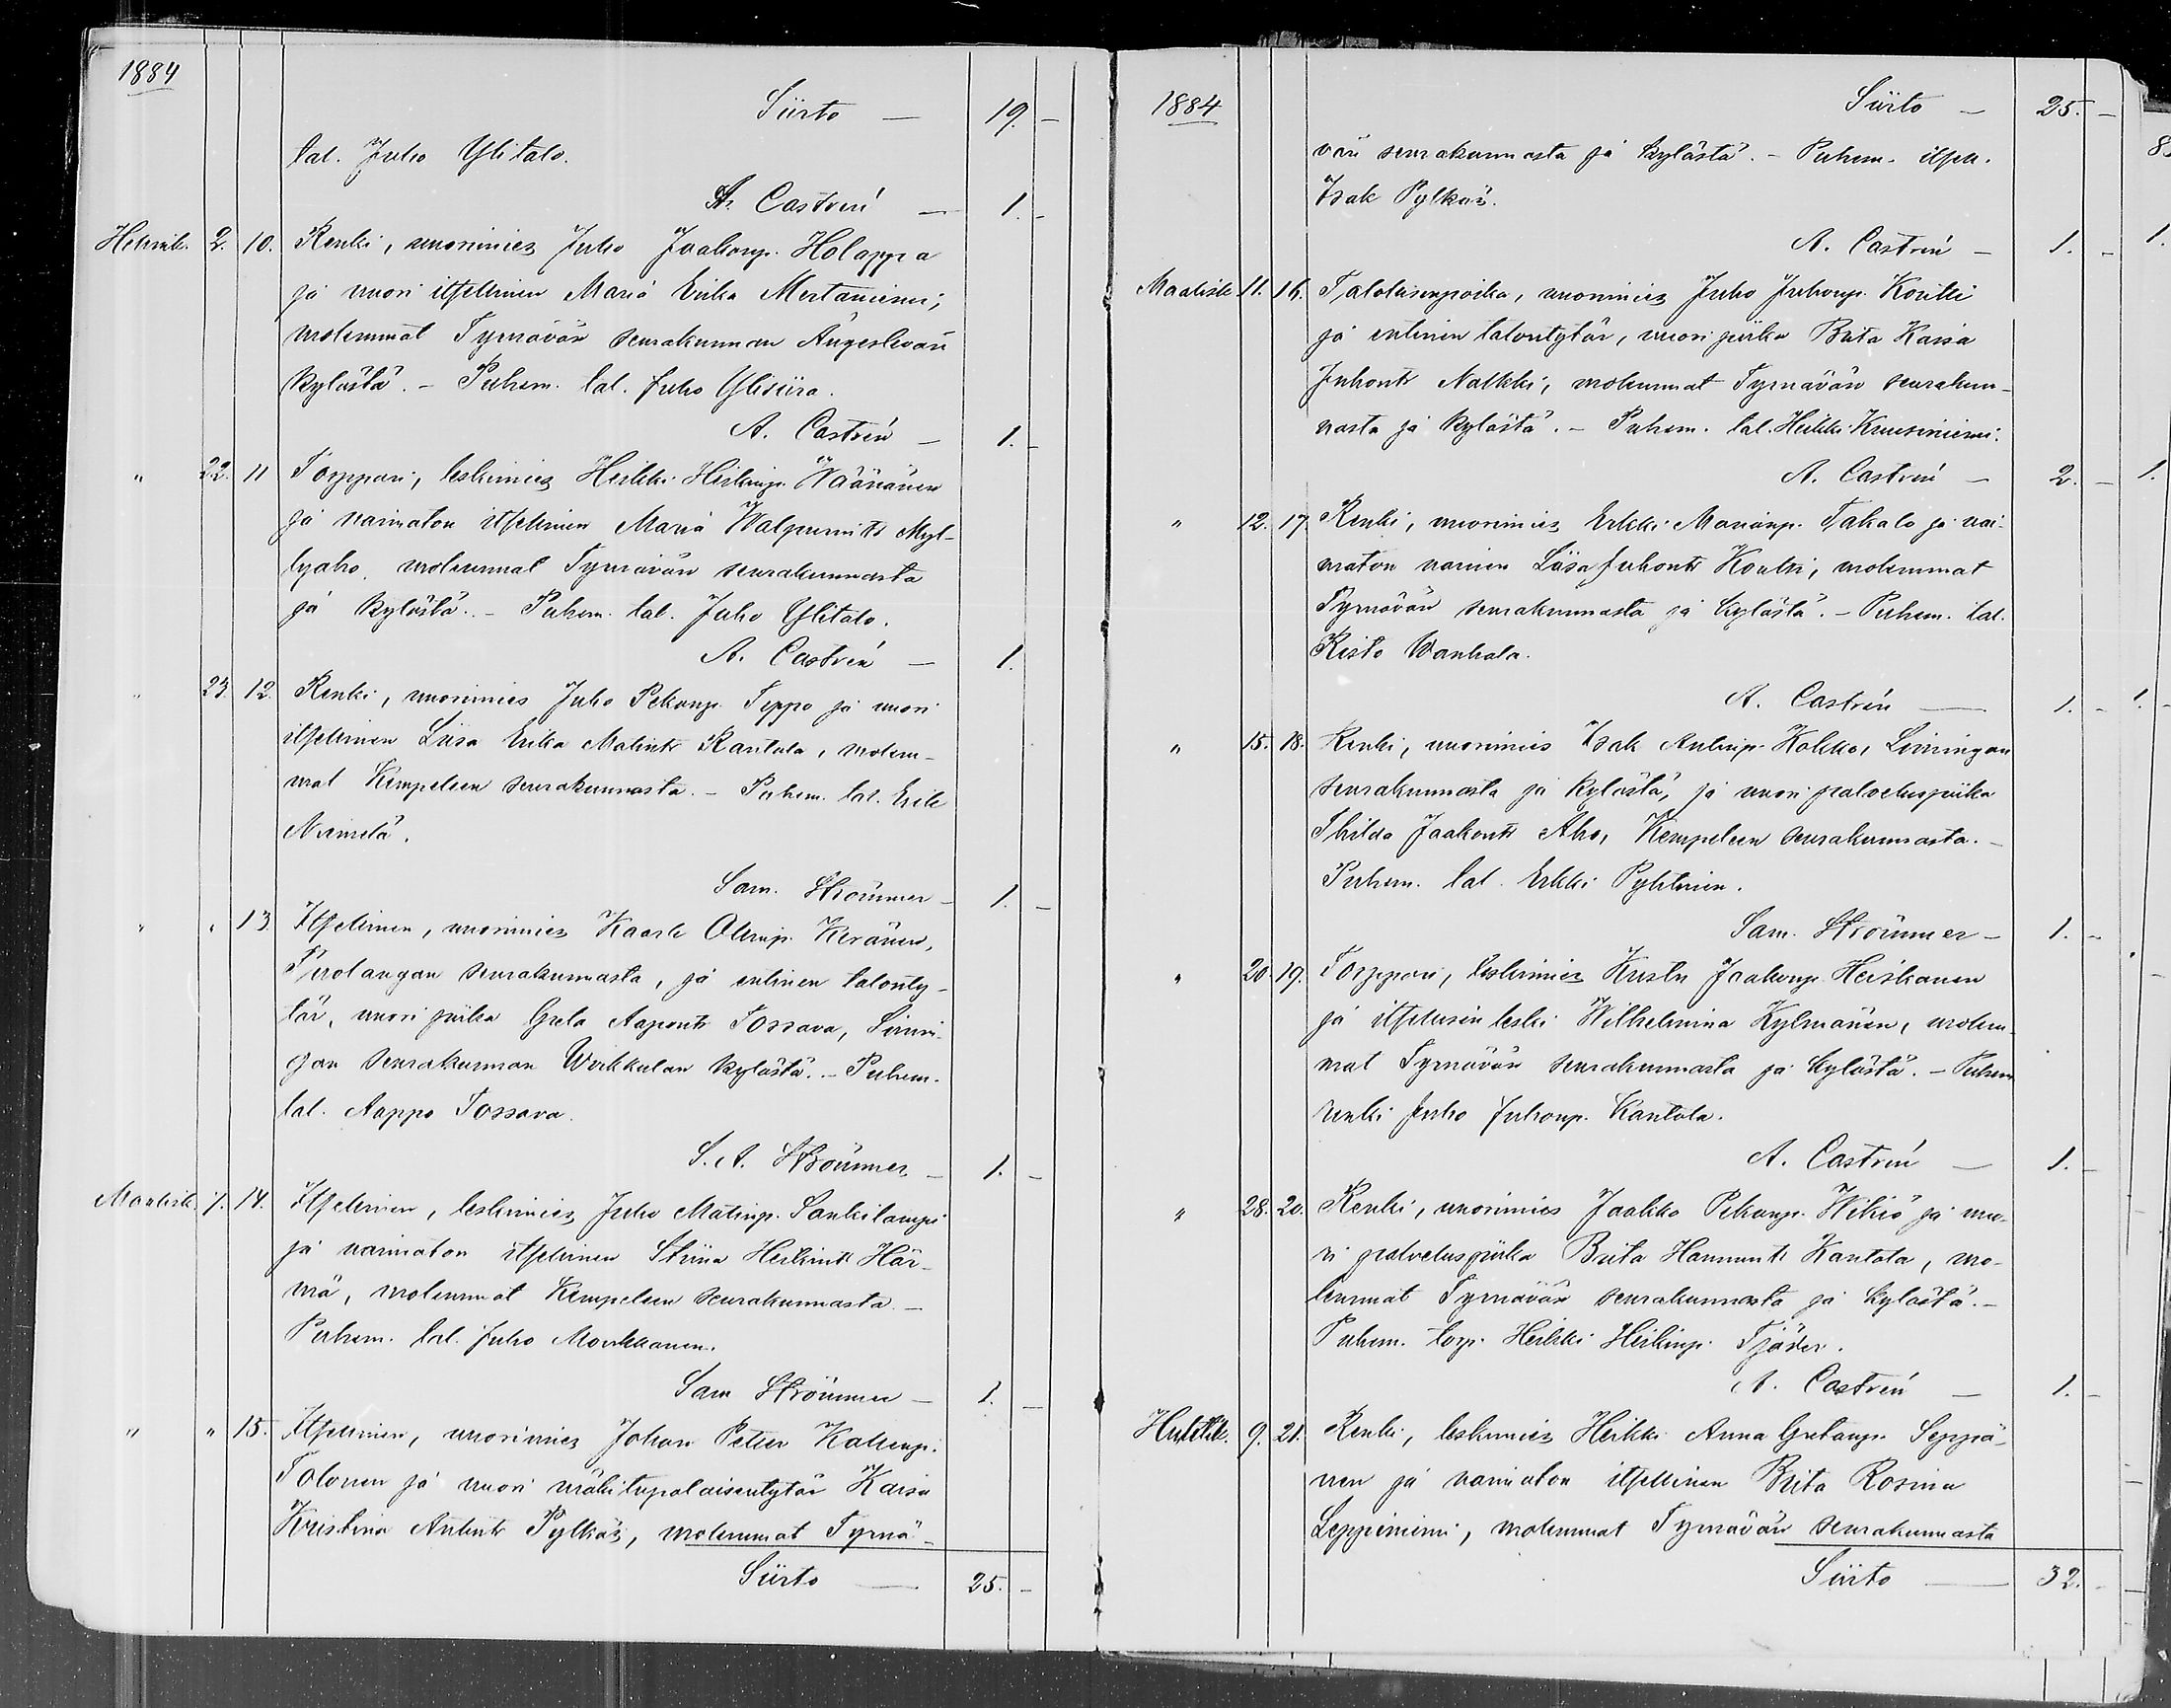 1884
Siirto — 19. —
tal. Juho Ylitalo.
A. Castrén — 1. —
Helmik. 2. 10. Renki, nuorimies Juho Jaakonp. Holappa
ja nuori itsellinen Maria Erika Mertaniemi;
molemmat Tyrnävän seurakunnan Ängeslevän
kylästä. – Puhem. tal. Juho Ylisiira.
A. Castrén — 1. —
" 22. 11 Torppari, leskimies Heikki Heikinp. Väänänen
ja naimaton itsellinen Maria Walpurintr Myl-
lyaho, molemmat Tyrnävän seurakunnasta
ja kylästä. – Puhem. tal. Juho Ylitalo.
A. Castrén — 1.
" 23. 12. Renki, nuorimies Juho Pekanp. Teppo ja nuori
itsellinen Liisa Erika Matintr Kantola, molem-
mat Kempeleen seurakunnasta. – Puhem. tal. Erik
Niemelä.
Sam. Strömmer — 1. —
" " 13. Itsellinen, nuorimies Kaarle Olinp. Keränen,
Puolangan seurakunnasta, ja entinen talonty-
tär, nuori piika Greta Aapontr Tossava, Limin-
gan seurakunnan Wirkkulan kylästä. – Puhem.
tal. Aappo Tossava.
S. A. Strömmer — 1. —
Maalisk. 1. 14. Itsellinen, leskimies Juho Matinp. Sankilampi
ja naimaton itsellinen Stiina Heikintr Här-
mä, molemmat Kempeleen seurakunnasta. –
Puhem. tal. Juho Monkkanen.
Sam Strömmer — 1. —
" " 15. Itsellinen, nuorimies Johan Petter Kallenp.
Tolonen ja nuori mäkitupalaisentytär Kaisa
Kristina Antintr Pylkäs, molemmat Tyrnä-
Siirto — 25. —
1884
Siirto — 25. —
vän seurakunnasta ja kylästä. – Puhem. itsell.
Isak Pylkäs.
A. Castrén — 1. —
Maalisk. 11. 16. Talollisenpoika, nuorimies Juho Juhonp. Kontti
ja entinen talontytär, nuori piika Brita Kaisa
Juhontr Nalkki, molemmat Tyrnävän seurakun-
nasta ja kylästä. – Puhem. tal. Heikki Kruusiniemi.
A. Castrén — 2. —
" 12. 17. Renki, nuorimies Erkki Marianp. Takalo ja nai-
maton nainen Liisa Juhontr Kontti, molemmat
Tyrnävän seurakunnasta ja kylästä. – Puhem. tal.
Risto Wanhala.
A. Castrén — 1. —
" 15. 18. Renki, nuorimies Isak Antinp. Kokko, Limingan
seurakunnasta ja kylästä, ja nuori palveluspiika
Thilda Jaakontr Aho, Kempeleen seurakunnasta. –
Puhem. tal. Erkki Pyhtinen.
Sam. Strömmer — 1. —
" 20. 19. Torppari, leskimies Kustu Jaakonp. Heiskanen
ja itsellisen leski Wilhelmina Kylmänen, molem-
mat Tyrnävän seurakunnasta ja kylästä. – Puhem.
renki Juho Juhonp. Kantola.
A. Castrén — 1. —
" 28. 20. Renki, nuorimies Jaakko Pekanp. Wikiö ja nuo-
ri palveluspiika Brita Hannuntr Kantola, mo-
lemmat Tyrnävän seurakunnasta ja kylästä. –
Puhem. torp. Heikki Heikinp. Tjäder.
A. Castrén — 1. —
Huhtik. 9. 21. Renki, leskimies Heikki Anna Gretanp. Seppä-
nen ja naimaton itsellinen Brita Rosina
Leppiniemi, molemmat Tyrnävän seurakunnasta
Siirto — 32. —